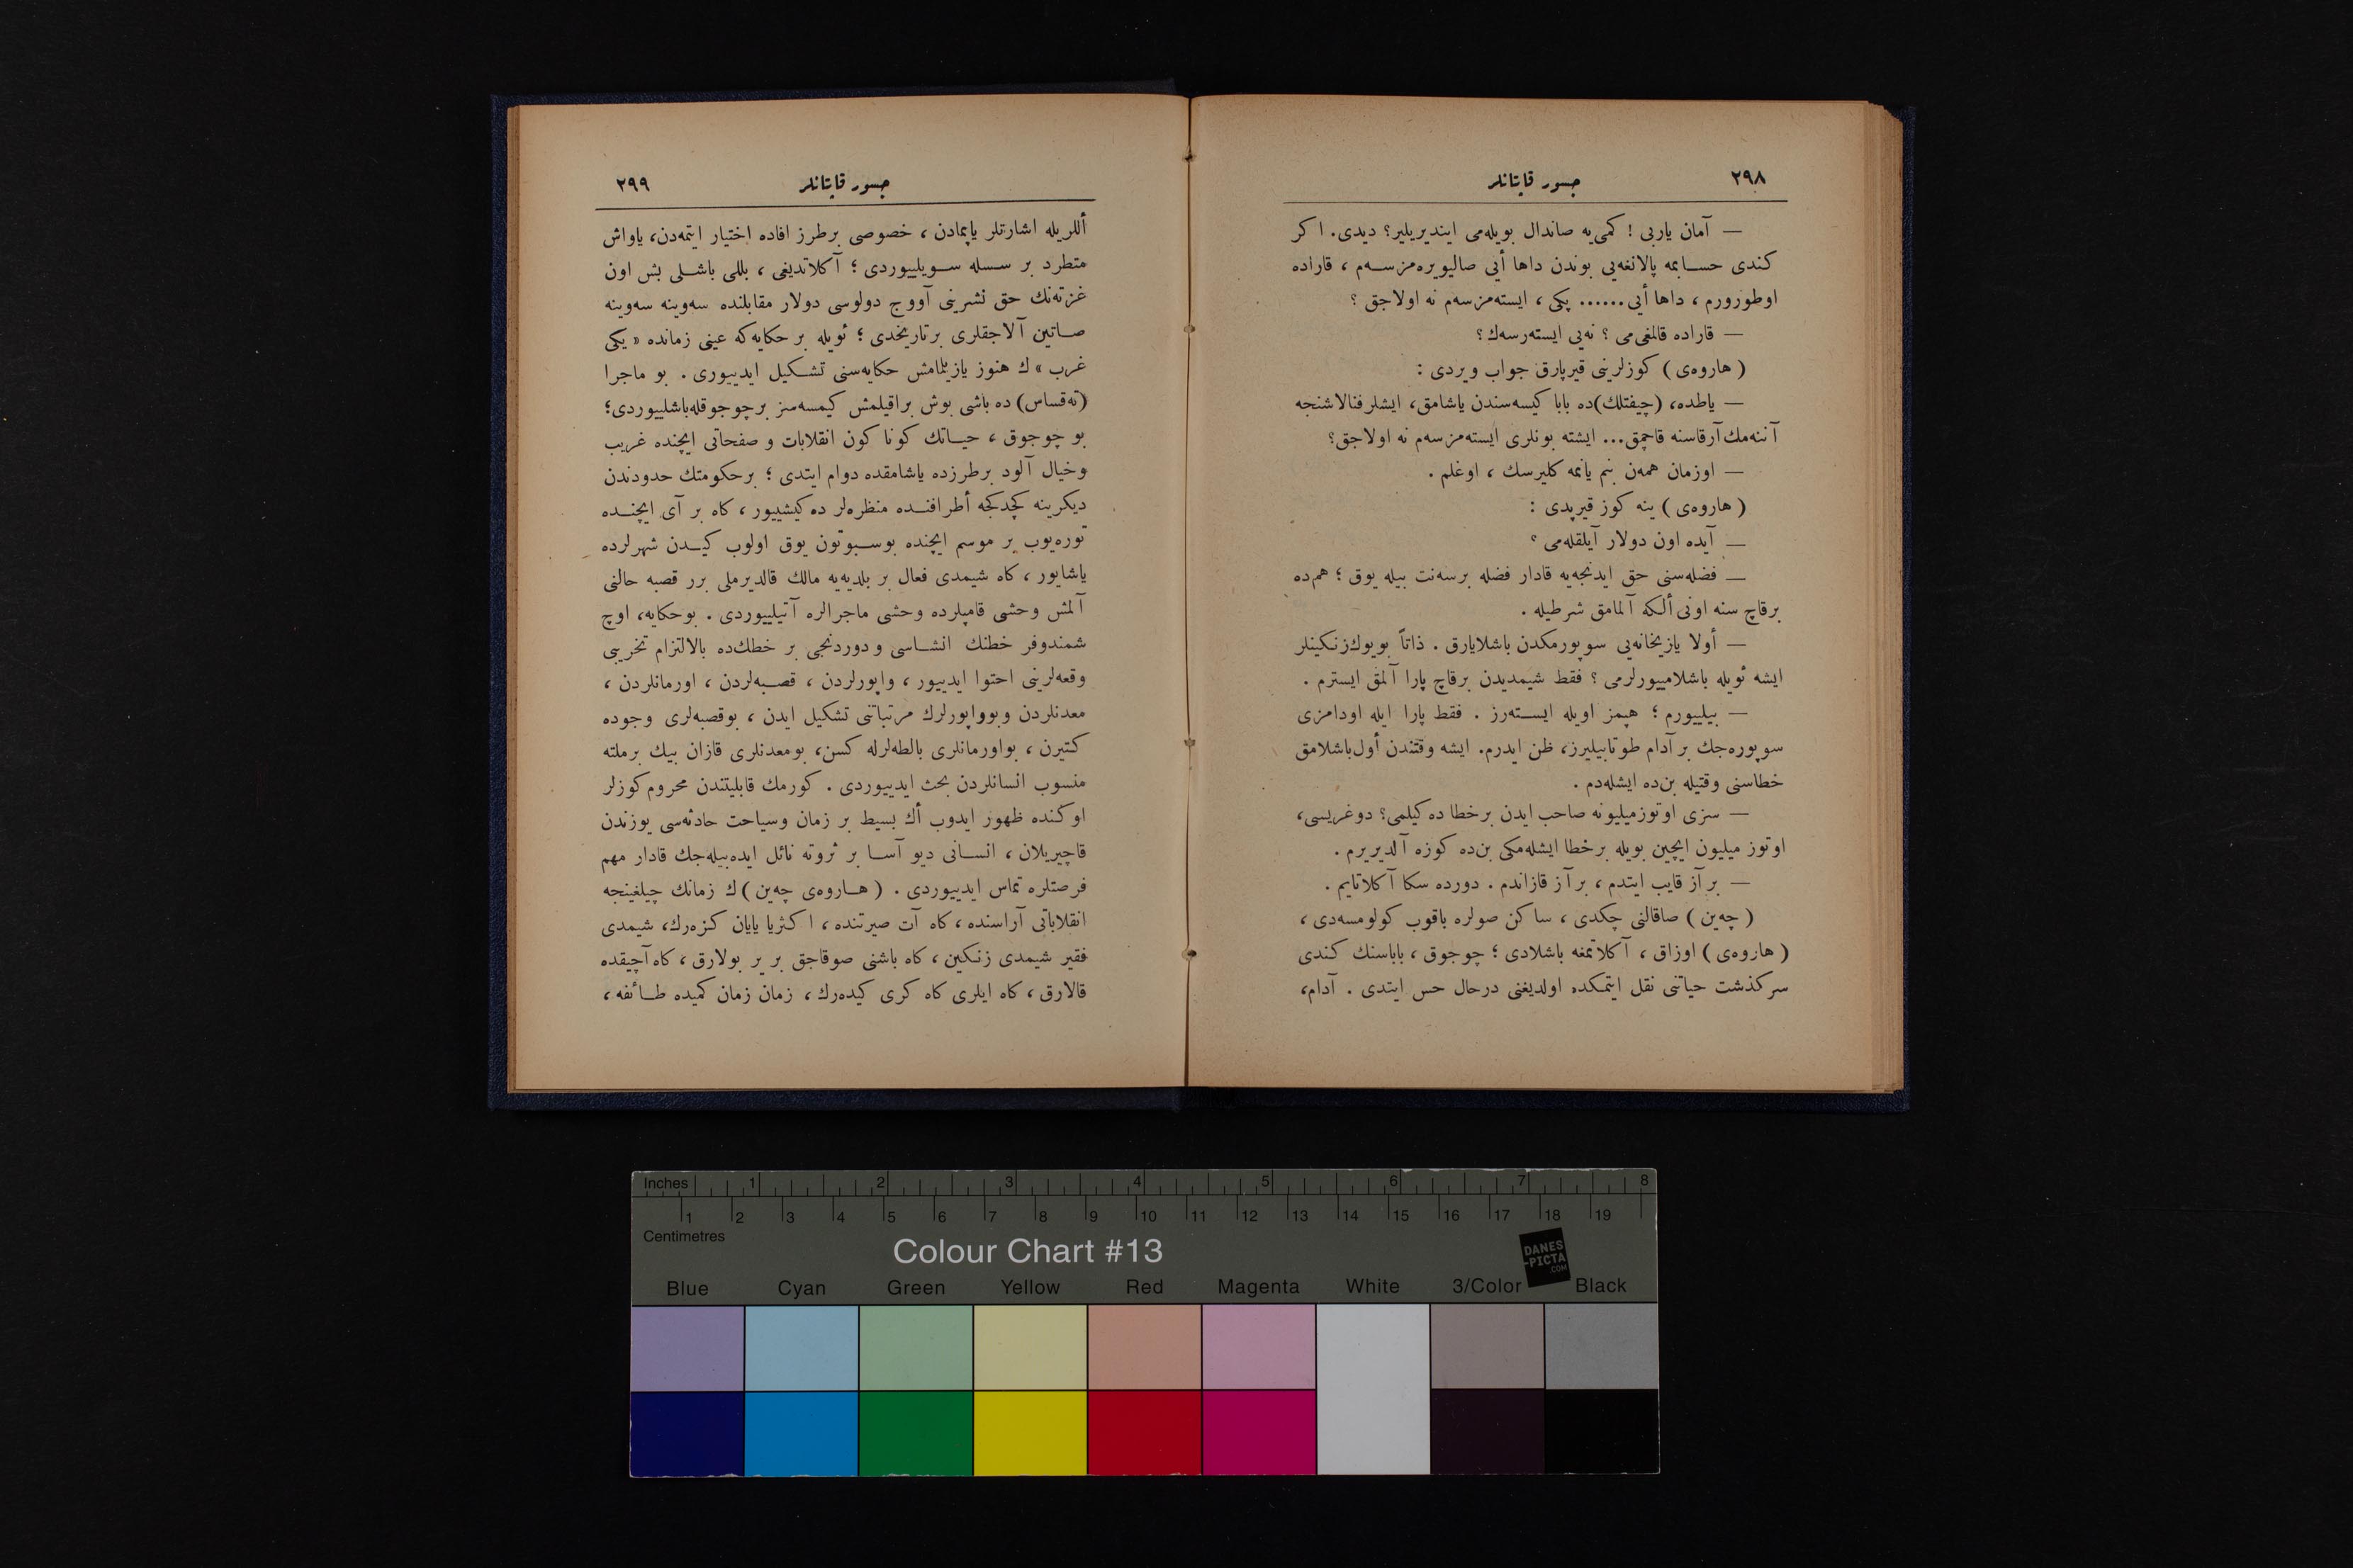 ٢٩٨
جسور قاپتانلر
— آمان ياربى ! كمى‌يه صاندال بويله‌مى اينديريلير؟ ديدى. اكر
كندى حسابمه پالانغه‌يى بوندن داها أيى صاليويره‌مزسه‌م ، قاراده
اوطورورم ، داها أيى...... پكى ، ايسته‌مزسه‌م نه اولاجق ؟
— قاراده قالمغى‌مى ؟ نه‌يى ايسته‌رسه‌ك ؟
( هاروه‌ى ) كوزلرينى قيرپارق جواب ويردى :
— ياطده، (چيفتلك)ده بابا كيسه‌سندن ياشامق، ايشلر فنالاشنجه
آننه‌مك آرقاسنه قاچمق... ايشته بونلرى ايسته‌مزسه‌م نه اولاجق؟
— اوزمان همه‌ن بنم يانمه كليرسك ، اوغلم .
( هاروه‌ى ) ينه كوز قيرپدى :
— آيده اون دولار آيلقله‌مى ؟
— فضله‌سنى حق ايدنجه‌يه قادار فضله بر سه‌نت بيله يوق ؛ هم‌ده
برقاچ سنه اونى ألكه آلمامق شرطيله .
— أولا يازيخانه‌يى سوپورمكدن باشلايارق . ذاتاً بويوك زنكينلر
ايشه ئويله باشلامييورلرمى ؟ فقط شيمديدن برقاچ پارا آلمق ايسترم .
— بيلييورم ؛ هپمز اويله ايسته‌رز . فقط پارا ايله اودامزى
سوپوره‌جك بر آدام طوتابيليرز، ظن ايدرم. ايشه وقتندن أول باشلامق
خطاسنى وقتيله بن‌ده ايشله‌دم .
— سزى اوتوز ميليونه صاحب ايدن بر خطا ده‌كيلمى؟ دوغريسى،
اوتوز ميليون ايچين بويله برخطا ايشله‌مكى بن‌ده كوزه آلديريرم .
— بر آز قايب ايتدم ، بر آز قازاندم . دورده سكا آكلاتايم .
( چه‌ين ) صاقالنى چكدى ، ساكن صولره باقوب كولومسه‌دى ،
( هاروه‌ى ) اوزاق ، آكلاتمغه باشلادى ؛ چوجوق ، باباسنك كندى
سركذشت حياتنى نقل ايتمكده اولديغنى درحال حس ايتدى . آدام،
جسور قاپتانلر
٢٩٩
أللريله اشارتلر ياپمادن ، خصوصى برطرز افاده اختيار ايتمه‌دن، ياواش
متطرد بر سسله سويلييوردى ؛ آكلاتديغى ، بللى باشلى بش اون
غزته‌نك حق نشرينى آووج دولوسى دولار مقابلنده سه‌وينه سه‌وينه
صاتين آلاجقلرى بر تاريخدى ؛ ئويله بر حكايه‌كه عينى زمانده « يكى
غرب » ك هنوز يازيلمامش حكايه‌سنى تشكيل ايدييورى . بو ماجرا
(ته‌قساس) ده باشى بوش براقيلمش كيمسه‌سز بر چوجوقله باشلييوردى؛
بو چوجوق ، حياتك كونا كون انقلابات و صفحاتى ايچنده غريب
وخيال آلود برطرزده ياشامقده دوام ايتدى ؛ برحكومتك حدودندن
ديكرينه كچدكجه أطرافنده منظره‌لر ده‌كيشييور ، كاه بر آى ايچنده
توره‌يوب بر موسم ايچنده بوسبوتون يوق اولوب كيدن شهرلرده
ياشايور ، كاه شيمدى فعال بر بلديه‌يه مالك قالديرملى برر قصبه حالنى
آلمش وحشى قامپلرده وحشى ماجرالره آتيلييوردى . بوحكايه، اوچ
شمندوفر خطنك انشاسى و دوردنجى بر خطك‌ده بالالتزام تخريبى
وقعه‌لرينى احتوا ايدييور ، واپورلردن ، قصبه‌لردن ، اورمانلردن ،
معدنلردن وبوواپورلرك مرتباتنى تشكيل ايدن ، بوقصبه‌لرى وجوده
كتيرن ، بواورمانلرى بالطه‌لرله كسن، بومعدنلرى قازان بيك برملته
منسوب انسانلردن بحث ايدييوردى . كورمك قابليتندن محروم كوزلر
اوكنده ظهور ايدوب أك بسيط بر زمان وسياحت حادثه‌سى يوزندن
قاچيريلان ، انسانى ديو آسا بر ثروته نائل ايده‌بيله‌جك قادار مهم
فرصتلره تماس ايدييوردى . ( هاروه‌ى چه‌ين ) ك زمانك چيلغينجه
انقلاباتى آراسنده ، كاه آت صيرتنده ، اكثريا يايان كزه‌رك، شيمدى
فقير شيمدى زنكين ، كاه باشنى صوقاجق بر ير بولارق ، كاه آچيقده
قالارق ، كاه ايلرى كاه كرى كيده‌رك ، زمان زمان كميده طائفه ،
Inches 1 2 3 4 5 6 7 8
1 2 3 4 5 6 7 8 9 10 11 12 13 14 15 16 17 18 19
Centimetres
Colour Chart #13
DANES
-PICTA
.COM
Blue Cyan Green Yellow Red Magenta White 3/Color Black